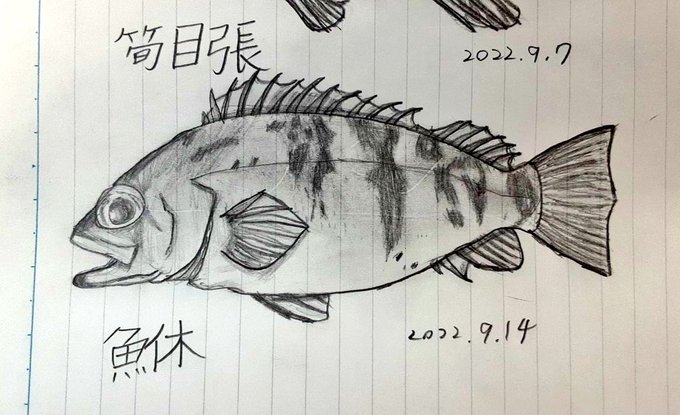 筍目張
2022.9.7
鮴
2022.9.14